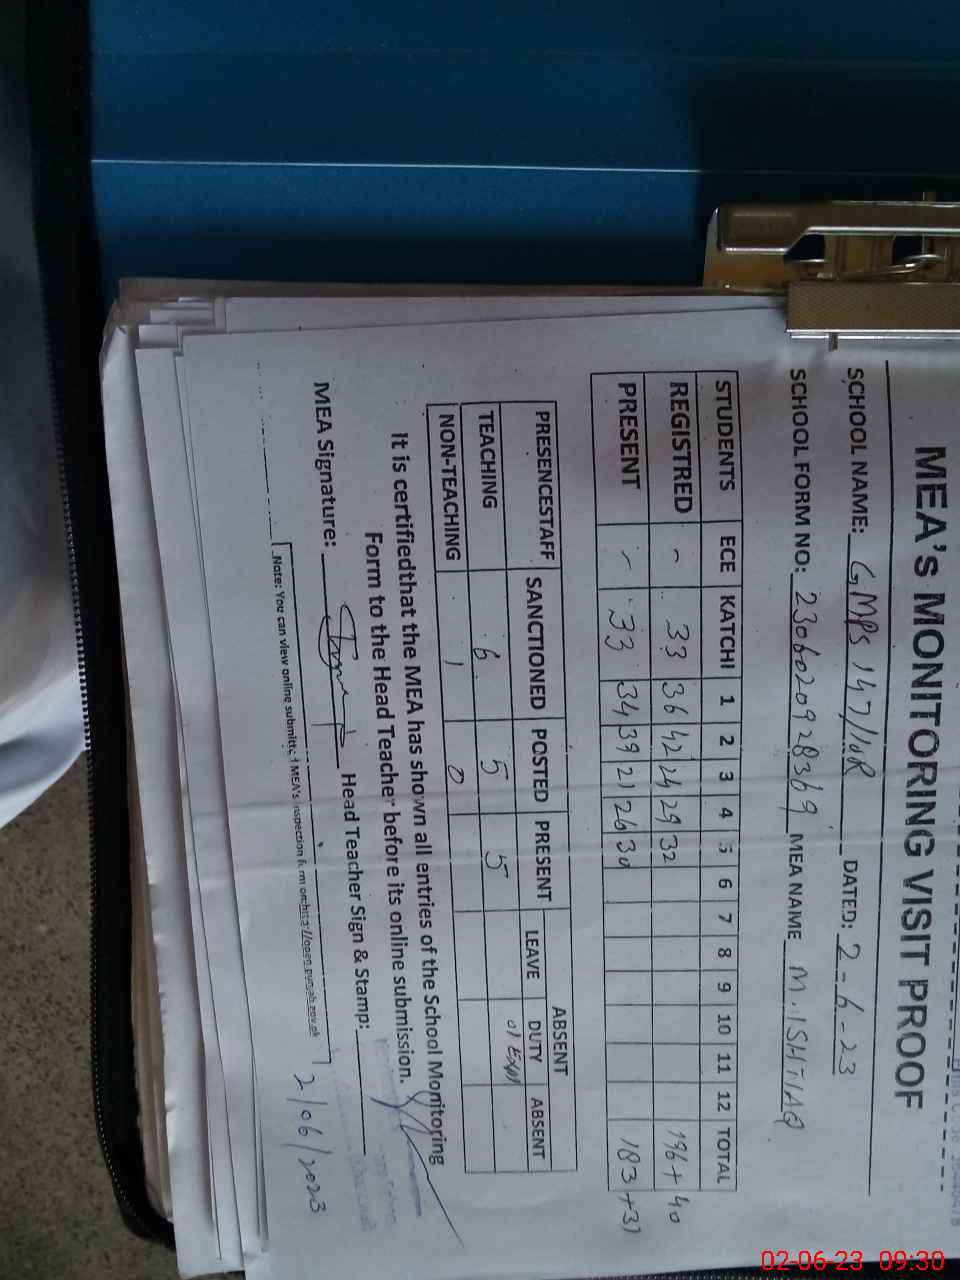 MEA's MONITORING VISIT PROOF
SCHOOL NAME: GMPS 147/10R DATED: 2-6-23
SCHOOL FORM NO: 23060209 28369 MEA NAME M. ISHTIAQ
STUDENTS ECE KATCHI 1 2 3 4 5 6 7 8 9 10 11 12 TOTAL
REGISTRED - 33 36 42 24 29 32 196+40
PRESENT - 33 34 39 21 26 30 183+31
PRESENCESTAFF SANCTIONED POSTED PRESENT ABSENT
LEAVE DUTY ABSENT
TEACHING 6 5 5 01
NON-TEACHING 1 0
It is certifiedthat the MEA has shown all entries of the School Monitoring
Form to the Head Teacher before its online submission.
MEA Signature: Head Teacher Sign & Stamp:
2/06/2023
Note: You can view online submitted MEA's inspection form on:http://open.punjab.gov.pk
02-06-23 09:30